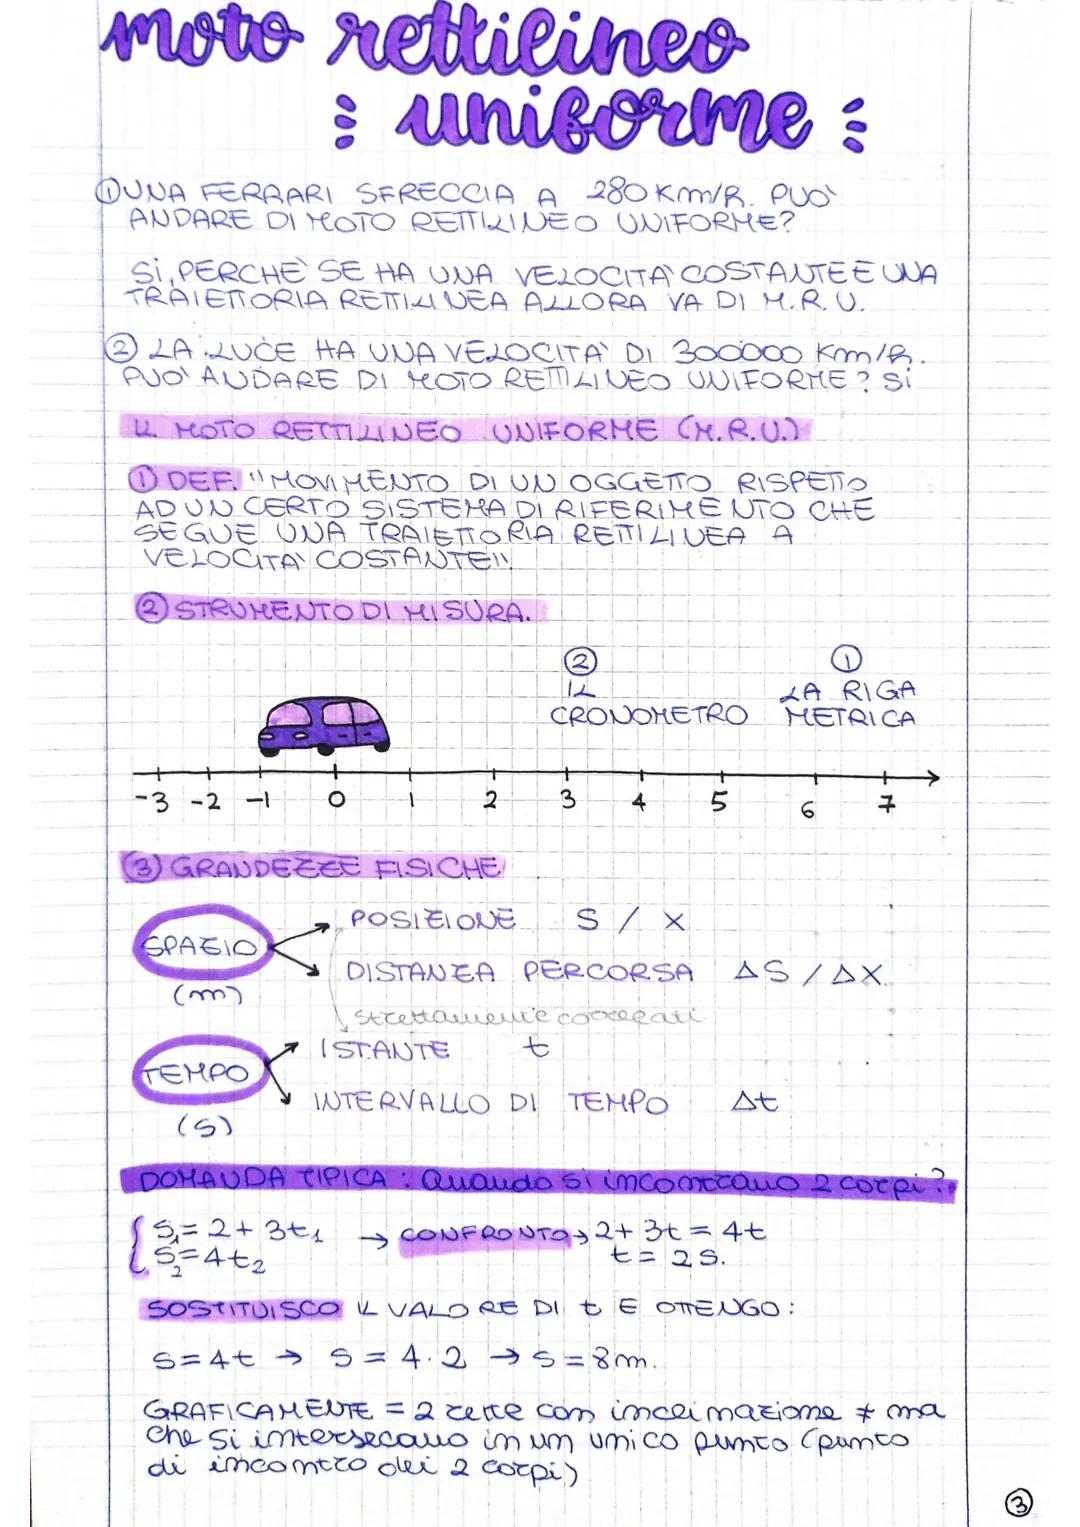 moto rettilineo
uniforme
① UNA FERRARI SFRECCIA A 280 Km/h. PUO'
ANDARE DI MOTO RETTILINEO UNIFORME?
Sì, PERCHE' SE HA UNA VELOCITA' COSTANTE E UNA
TRAIETTORIA RETTILINEA ALLORA VA DI M.R.U.
② LA LUCE HA UNA VELOCITA' DI 300000 Km/h.
PUO' ANDARE DI MOTO RETTILINEO UNIFORME? Sì
IL MOTO RETTILINEO UNIFORME (M.R.U.)
① DEF. "MOVIMENTO DI UN OGGETTO RISPETTO
AD UN CERTO SISTEMA DI RIFERIMENTO CHE
SEGUE UNA TRAIETTORIA RETTILINEA A
VELOCITA' COSTANTE"
② STRUMENTO DI MISURA.
② ①
IL LA RIGA
CRONOMETRO METRICA
-3 -2 -1 0 1 2 3 4 5 6 7
③ GRANDEZZE FISICHE
POSIZIONE S / X
SPAZIO
DISTANZA PERCORSA ΔS / ΔX
(m)
strettamente correlati
ISTANTE t
TEMPO
INTERVALLO DI TEMPO Δt
(s)
DOMANDA TIPICA: Quando si incontrano 2 corpi?
S₁ = 2 + 3t₁ → CONFRONTO → 2 + 3t = 4t
S₂ = 4t₂ t = 2s.
SOSTITUISCO IL VALORE DI t E OTTENGO:
s = 4t → s = 4·2 → s = 8m.
GRAFICAMENTE = 2 rette con inclinazione ≠ ma
che si intersecano in un unico punto (punto
di incontro dei 2 corpi)
③